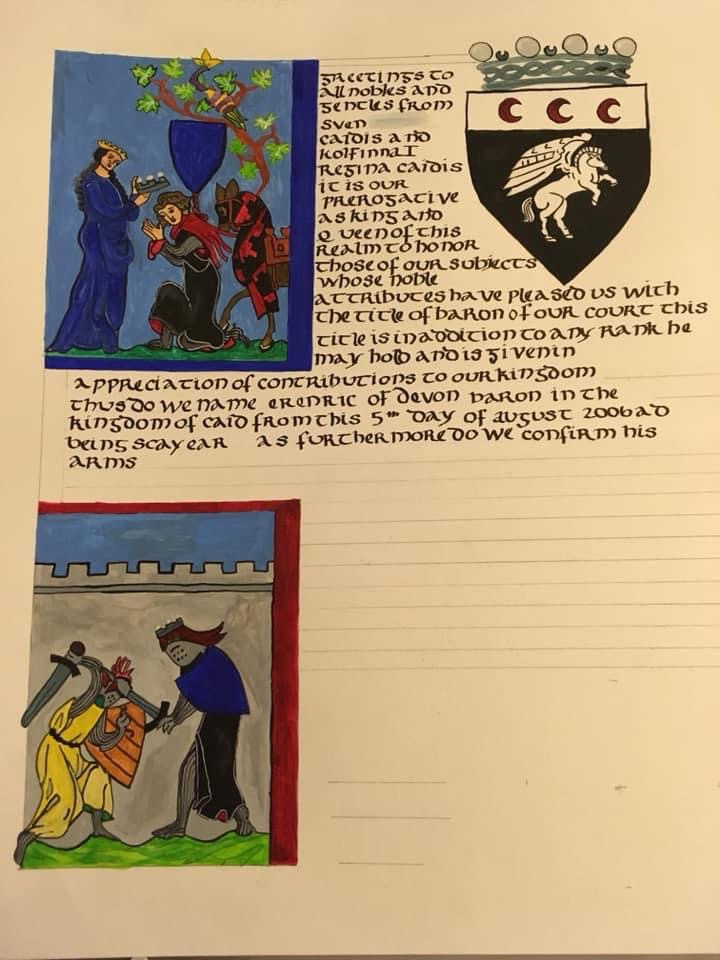 Greetings to
all nobles and
gentles from
Sven
Caidis and
Kolfinna I
Regina Caidis
it is our
prerogative
as king and
Queen of this
realm to honor
those of our subjects
whose noble
attributes have pleased us with
the title of baron of our court this
title is in addition to any rank he
may hold and is given in
appreciation of contributions to our kingdom
thus do we name Erenric of Devon baron in the
kingdom of Caid from this 5th day of august 2006 ad
being sca year as furthermore do we confirm his
arms